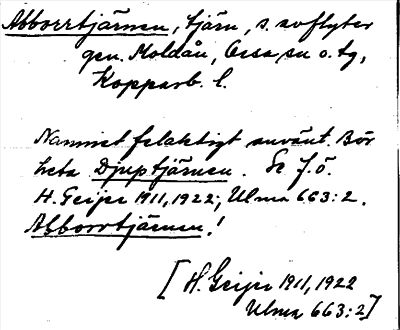 Abborrtjärnen, tjärn, s. avflyter
gen. Moldån, Orsa sn o. tg,
Kopparb. l.
Namnet felaktigt använt. Bör
heta Djuptjärnen. Se J.Ö.
H. Geijer 1911, 1922; Ulma 663:2.
Abborrtjärnen!
[H. Geijer 1911, 1922
Ulma 663:2]